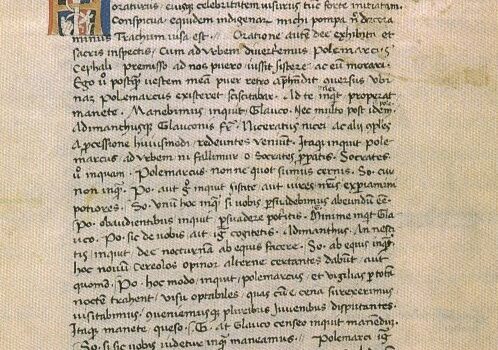 oraturus eiusq celebritatem visurus tuc forte initiatam.
Conspicua equidem indigenar michi pompa nec decora
minus Tracium visa est. Oratione aute dec exhibiti et
sacris inspectis, Cum ad vrbem diverteremus Polemarcus
Cephali premisso ad nos puero iussit sistere ac eum morari.
Ego postq vestem meam puer retro aversus vbi
nam Polemarcus existeret sciscitabar. Ad te inqt properat
manete. Manebimus inquit Glauco. Nec multo post idem
Adimanthusq Glauconis fr Niceratus nicei ac alii
a processione huiusmodi redeuntes veniunt. Itaq inquit pole
marcus ad vrbem ni fallimur o Socrates ppatis. Socrates
inquam. Polemarcus non ne quot sumus cernis. So. cur
non inq. Po. aut inquit sistite aut vires nras experiamini
potiores. So. vnu hoc inq si vobis psuadebimus abeundu ee
Po. obaudientibus inquit psuadere potitis. Minime inqt Gla
vco. Po. sic de vobis aut cogitetis. Adimanthus. An nesci
tis inquit dec nocturna ab equis fiere. So. ab equis inq
hoc novu cereolos opinor alterne certantes dabut aut
quomo. Po. hoc modo inquit polemarcus, et vigilias p tota
nocte trahent, visu optabiles, quas cu e cena surrexerimus
visitabimus, queniemusq pluribus iuvenibus disputantes.
Itaq manete queso. G. at Glauco censeo inquit manendu.
So. si sic vobis videtur inq maneamus. Polemarci ig